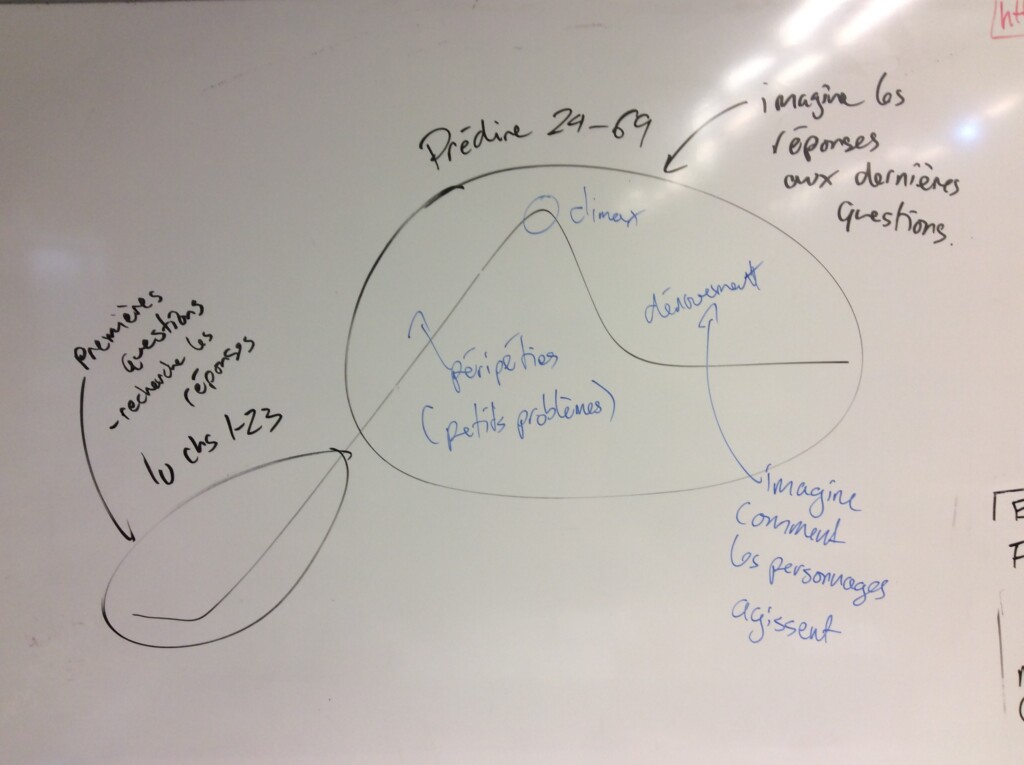 Prédire 24-69
imagine les
réponses
aux dernières
questions.
climax
dénouement
péripéties
(petits problèmes)
premières
questions
-recherche les
réponses
lu chs 1-23
imagine
comment
les personnages
agissent